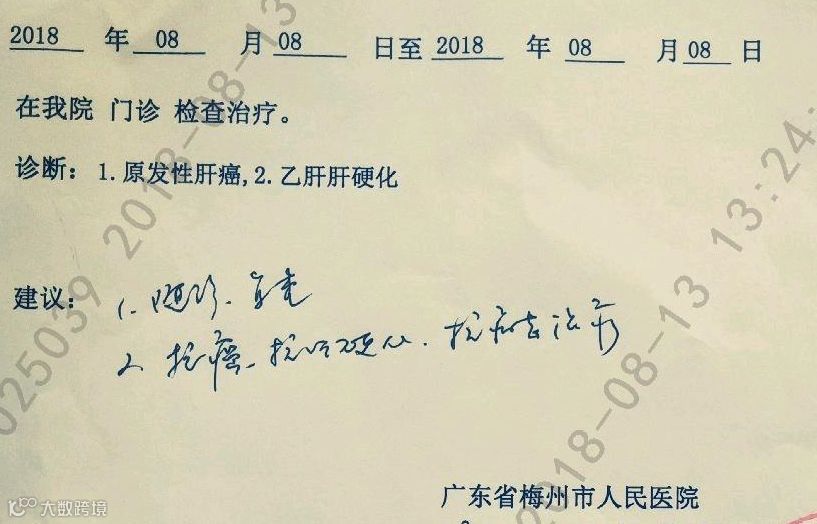 2018 年 08 月 08 日至 2018 年 08 月 08 日
在我院 门诊 检查治疗。
诊断：1.原发性肝癌,2.乙肝肝硬化
建议：1. 随诊、复查
2. 抗癌、抗肝硬化、抗病毒治疗
广东省梅州市人民医院
025039 2018-08-13
2018-08-13 13:24:
大数跨境